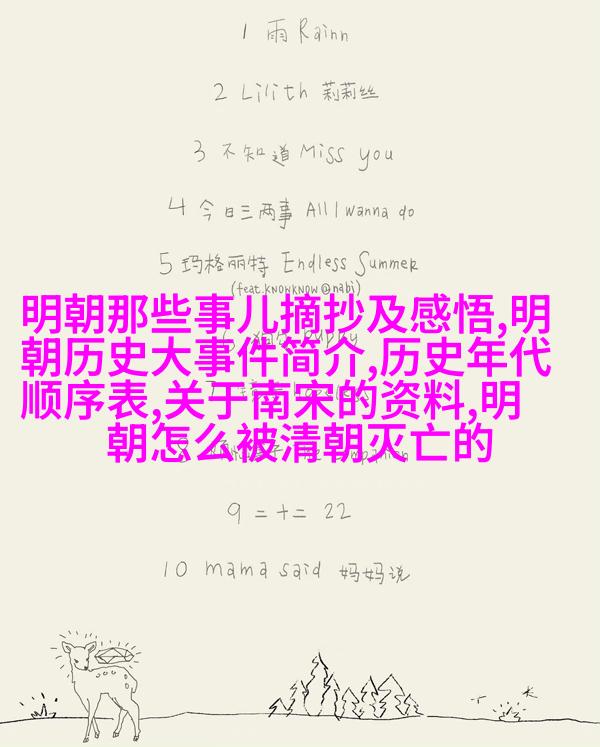 1 雨 Rainn
2 Lilith 莉莉丝
3 不知道 Miss you
4 今日三两事 All I wanna do
5 玛格丽特 Endless Summer
(feat.KNOWKNOW@nabi)
明朝那些事儿摘抄及感悟,明
朝历史大事件简介,历史年代
顺序表,关于南宋的资料,明
朝怎么被清朝灭亡的
9 二十二 22
10 mama said 妈妈说